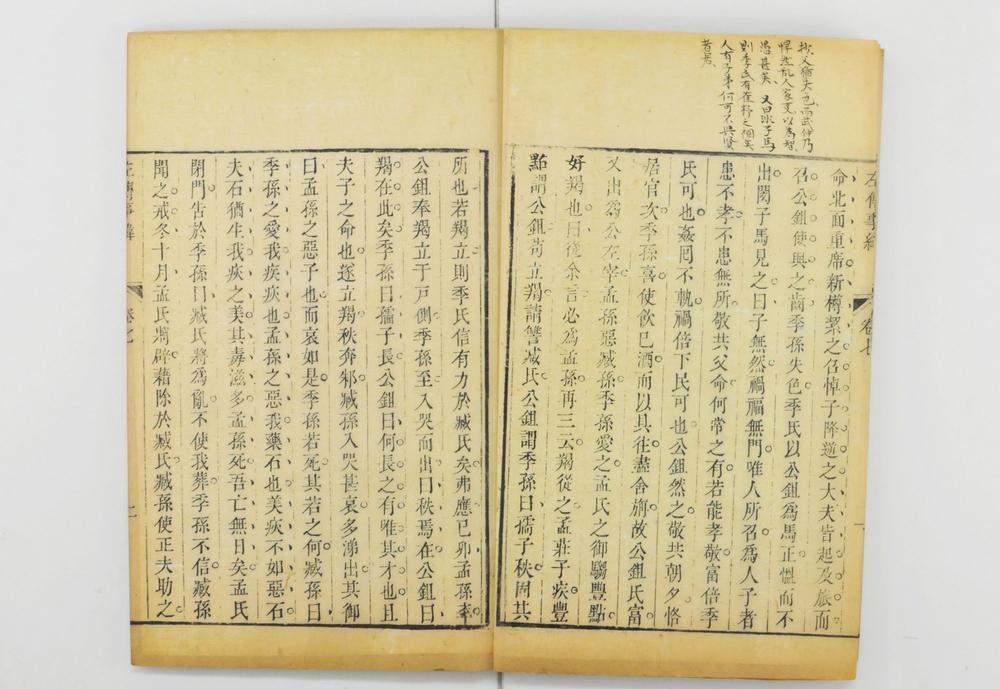 左傳事緯 卷七 一
命北面重席新樽絜之召悼子降逆之大夫皆起及旅而
召公鉏使與之齒季孫失色季氏以公鉏為馬正慍而不
出閔子馬見之曰子無然禍福無門唯人所召為人子者
患不孝不患無所敬共父命何常之有若能孝敬富倍季
氏可也姦回不軌禍倍下民可也公鉏然之敬共朝夕恪
居官次季孫喜使飲已酒而以具往盡舍旃故公鉏氏富
又出為公左宰孟孫惡臧孫季孫愛之孟氏之御騶豐點
好羯也曰從余言必為孟孫再三云羯從之孟莊子疾豐
點謂公鉏苟立羯請讐臧氏公鉏謂季孫曰孺子秩固其
父猶也而武仲乃
悍然亂人家以為智
愚甚矣 又曰子馬
則季氏有崔杼之禍矣
人有子弟何可不與賢
者居
所也若羯立則季氏信有力於臧氏矣弗應已卯孟孫卒
公鉏奉羯立于戶側季孫至入哭而出曰秩焉在公鉏曰
羯在此矣季孫曰孺子長公鉏曰何長之有唯其才也且
夫子之命也遂立羯秩奔邾臧孫入哭甚哀多涕出其御
曰孟孫之惡子也而哀如是季孫若死其若之何臧孫曰
季孫之愛我疾疢也孟孫之惡我藥石也美疢不如惡石
夫石猶生我疢之美其毒滋多孟孫死吾亡無日矣孟氏
閉門告於季孫曰臧氏將為亂不使我葬季孫不信臧孫
聞之戒冬十月孟氏將辟藉除於臧氏臧孫使正夫助之
左傳事緯 卷七 二